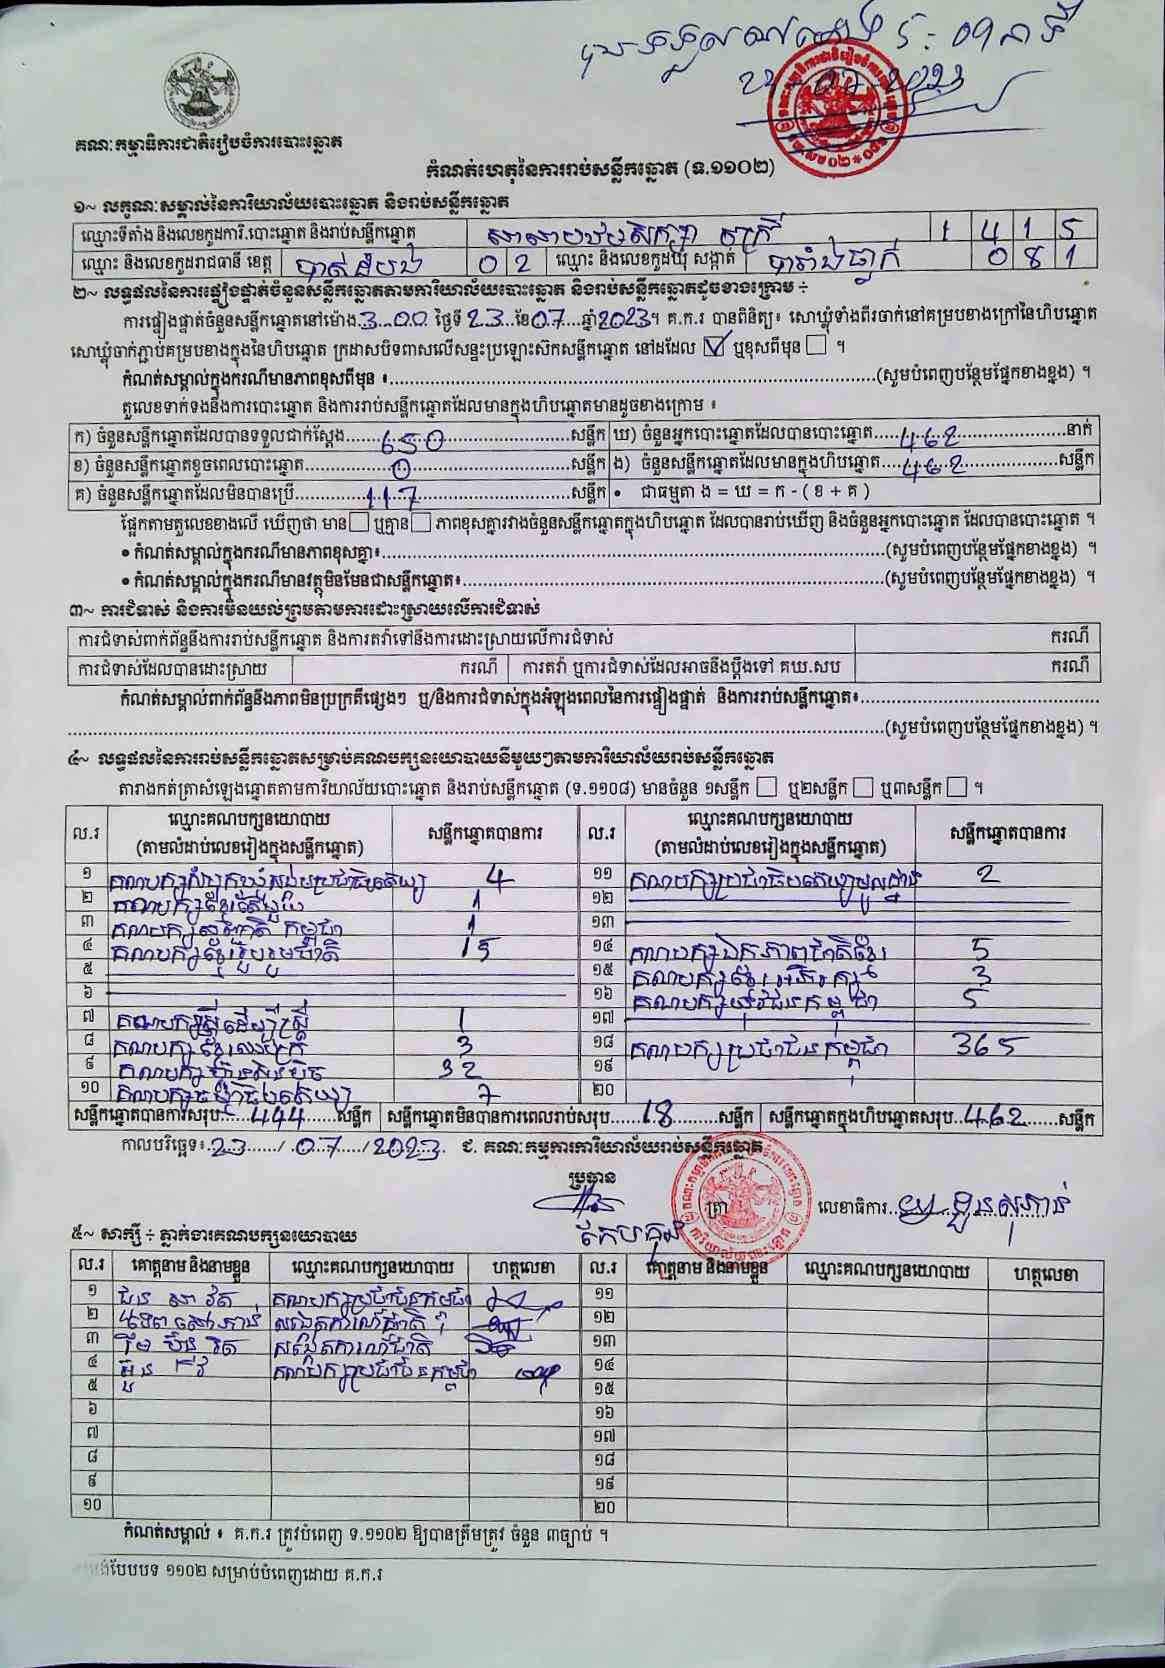 ២៣-០៧-២០២៣
គណៈកម្មាធិការជាតិរៀបចំការបោះឆ្នោត
កំណត់ហេតុនៃការរាប់សន្លឹកឆ្នោត (ទ.១១០២)
១~ លក្ខណៈសម្គាល់នៃការិយាល័យបោះឆ្នោត និងរាប់សន្លឹកឆ្នោត
ឈ្មោះទីតាំង និងលេខកូដការិ.បោះឆ្នោត និងរាប់សន្លឹកឆ្នោត 1 4 1 5
ឈ្មោះ និងលេខកូដរាជធានី ខេត្ត បាត់ដំបង 0 2 ឈ្មោះ និងលេខកូដឃុំ សង្កាត់ បារាំងធ្លាក់ 0 8 1
២~ លទ្ធផលនៃការផ្ទៀងផ្ទាត់ចំនួនសន្លឹកឆ្នោតតាមការិយាល័យបោះឆ្នោត និងរាប់សន្លឹកឆ្នោតដូចខាងក្រោម ÷
ការផ្ទៀងផ្ទាត់ចំនួនសន្លឹកឆ្នោតនៅម៉ោង.3...00 ថ្ងៃទី 23 ខែ07....ឆ្នាំ2023។ គ.ក.រ បានពិនិត្យ៖ សោឃ្លុំទាំងពីរចាក់នៅគម្របខាងក្រៅនៃហិបឆ្នោត
សោឃ្លុំចាក់ភ្ជាប់គម្របខាងក្នុងនៃហិបឆ្នោត ក្រដាសបិទពាសលើសន្ទះប្រឡោះស៊កសន្លឹកឆ្នោត នៅដដែល ☑ ឬខុសពីមុន ☐ ។
កំណត់សម្គាល់ក្នុងករណីមានភាពខុសពីមុន ៖..........(សូមបំពេញបន្ថែមផ្នែកខាងខ្នង) ។
តួលេខទាក់ទងនឹងការបោះឆ្នោត និងការរាប់សន្លឹកឆ្នោតដែលមានក្នុងហិបឆ្នោតមានដូចខាងក្រោម ៖
ក) ចំនួនសន្លឹកឆ្នោតដែលបានទទួលជាក់ស្តែង......650......សន្លឹក ឃ) ចំនួនអ្នកបោះឆ្នោតដែលបានបោះឆ្នោត.....462......នាក់
ខ) ចំនួនសន្លឹកឆ្នោតខូចពេលបោះឆ្នោត......0......សន្លឹក ង) ចំនួនសន្លឹកឆ្នោតដែលមានក្នុងហិបឆ្នោត....462......សន្លឹក
គ) ចំនួនសន្លឹកឆ្នោតដែលមិនបានប្រើ......117......សន្លឹក • ជាធម្មតា ង = ឃ = ក - ( ខ + គ )
ផ្អែកតាមតួលេខខាងលើ ឃើញថា មាន ☐ ឬគ្មាន ☐ ភាពខុសគ្នារវាងចំនួនសន្លឹកឆ្នោតក្នុងហិបឆ្នោត ដែលបានរាប់ឃើញ និងចំនួនអ្នកបោះឆ្នោត ដែលបានបោះឆ្នោត ។
• កំណត់សម្គាល់ក្នុងករណីមានភាពខុសគ្នា៖..........(សូមបំពេញបន្ថែមផ្នែកខាងខ្នង) ។
• កំណត់សម្គាល់ក្នុងករណីមានវត្ថុមិនមែនជាសន្លឹកឆ្នោត៖..........(សូមបំពេញបន្ថែមផ្នែកខាងខ្នង) ។
៣~ ការជំទាស់ និងការមិនយល់ព្រមតាមការដោះស្រាយលើការជំទាស់
ការជំទាស់ពាក់ព័ន្ធនឹងការរាប់សន្លឹកឆ្នោត និងការតវ៉ាទៅនឹងការដោះស្រាយលើការជំទាស់ ករណី
ការជំទាស់ដែលបានដោះស្រាយ ករណី ការតវ៉ា ឬការជំទាស់ដែលអាចនឹងប្តឹងទៅ គឃ.សប ករណី
កំណត់សម្គាល់ពាក់ព័ន្ធនឹងភាពមិនប្រក្រតីផ្សេងៗ ឬ/និងការជំទាស់ក្នុងអំឡុងពេលនៃការផ្ទៀងផ្ទាត់ និងការរាប់សន្លឹកឆ្នោត៖..........
..........(សូមបំពេញបន្ថែមផ្នែកខាងខ្នង) ។
៤~ លទ្ធផលនៃការរាប់សន្លឹកឆ្នោតសម្រាប់គណបក្សនយោបាយនីមួយៗតាមការិយាល័យរាប់សន្លឹកឆ្នោត
តារាងកត់ត្រាសំឡេងឆ្នោតតាមការិយាល័យបោះឆ្នោត និងរាប់សន្លឹកឆ្នោត (ទ.១១០៨) មានចំនួន ១សន្លឹក ☐ ឬ២សន្លឹក ☐ ឬ៣សន្លឹក ☐ ។
ល.រ ឈ្មោះគណបក្សនយោបាយ (តាមលំដាប់លេខរៀងក្នុងសន្លឹកឆ្នោត) សន្លឹកឆ្នោតបានការ ល.រ ឈ្មោះគណបក្សនយោបាយ (តាមលំដាប់លេខរៀងក្នុងសន្លឹកឆ្នោត) សន្លឹកឆ្នោតបានការ
១ គណបក្សសំបុកឃ្មុំសង្គមប្រជាធិបតេយ្យ 4 ១១ គណបក្សប្រជាធិបតេយ្យមូលដ្ឋាន 2
២ គណបក្សខ្មែរតែមួយ 1 ១២
៣ 1 ១៣
៤ គណបក្សខ្មែររួបរួមជាតិ 15 ១៤ គណបក្សឯកភាពជាតិខ្មែរ 5
៥ ១៥ គណបក្សខ្មែរអភិរក្ស 3
៦ ១៦ គណបក្សយុវជនកម្ពុជា 5
៧ គណបក្សស្ត្រីដើម្បីស្ត្រី 1 ១៧
៨ គណបក្សខ្មែរឈប់ក្រ 3 ១៨ គណបក្សប្រជាជនកម្ពុជា 365
៩ គណបក្សហ៊្វុនស៊ិនប៉ិច 32 ១៩
១០ 7 ២០
សន្លឹកឆ្នោតបានការសរុប:..444......សន្លឹក សន្លឹកឆ្នោតមិនបានការពេលរាប់សរុប.....18......សន្លឹក សន្លឹកឆ្នោតក្នុងហិបឆ្នោតសរុប..462......សន្លឹក
កាលបរិច្ឆេទ៖.23....../.07...../2023. ជ. គណៈកម្មការការិយាល័យរាប់សន្លឹកឆ្នោត
ប្រធាន
ត្រា លេខាធិការ
៥~ សាក្សី ÷ ភ្នាក់ងារគណបក្សនយោបាយ
ល.រ គោត្តនាម និងនាមខ្លួន ឈ្មោះគណបក្សនយោបាយ ហត្ថលេខា ល.រ គោត្តនាម និងនាមខ្លួន ឈ្មោះគណបក្សនយោបាយ ហត្ថលេខា
១ គណបក្សប្រជាជនកម្ពុជា ១១
២ សង្កេតការណ៍ជាតិ ១២
៣ សង្កេតការណ៍ជាតិ ១៣
៤ គណបក្សប្រជាជនកម្ពុជា ១៤
៥ ១៥
៦ ១៦
៧ ១៧
៨ ១៨
៩ ១៩
១០ ២០
កំណត់សម្គាល់ ៖ គ.ក.រ ត្រូវបំពេញ ទ.១១០២ ឱ្យបានត្រឹមត្រូវ ចំនួន ៣ច្បាប់ ។
បែបបទ ១១០២ សម្រាប់បំពេញដោយ គ.ក.រ